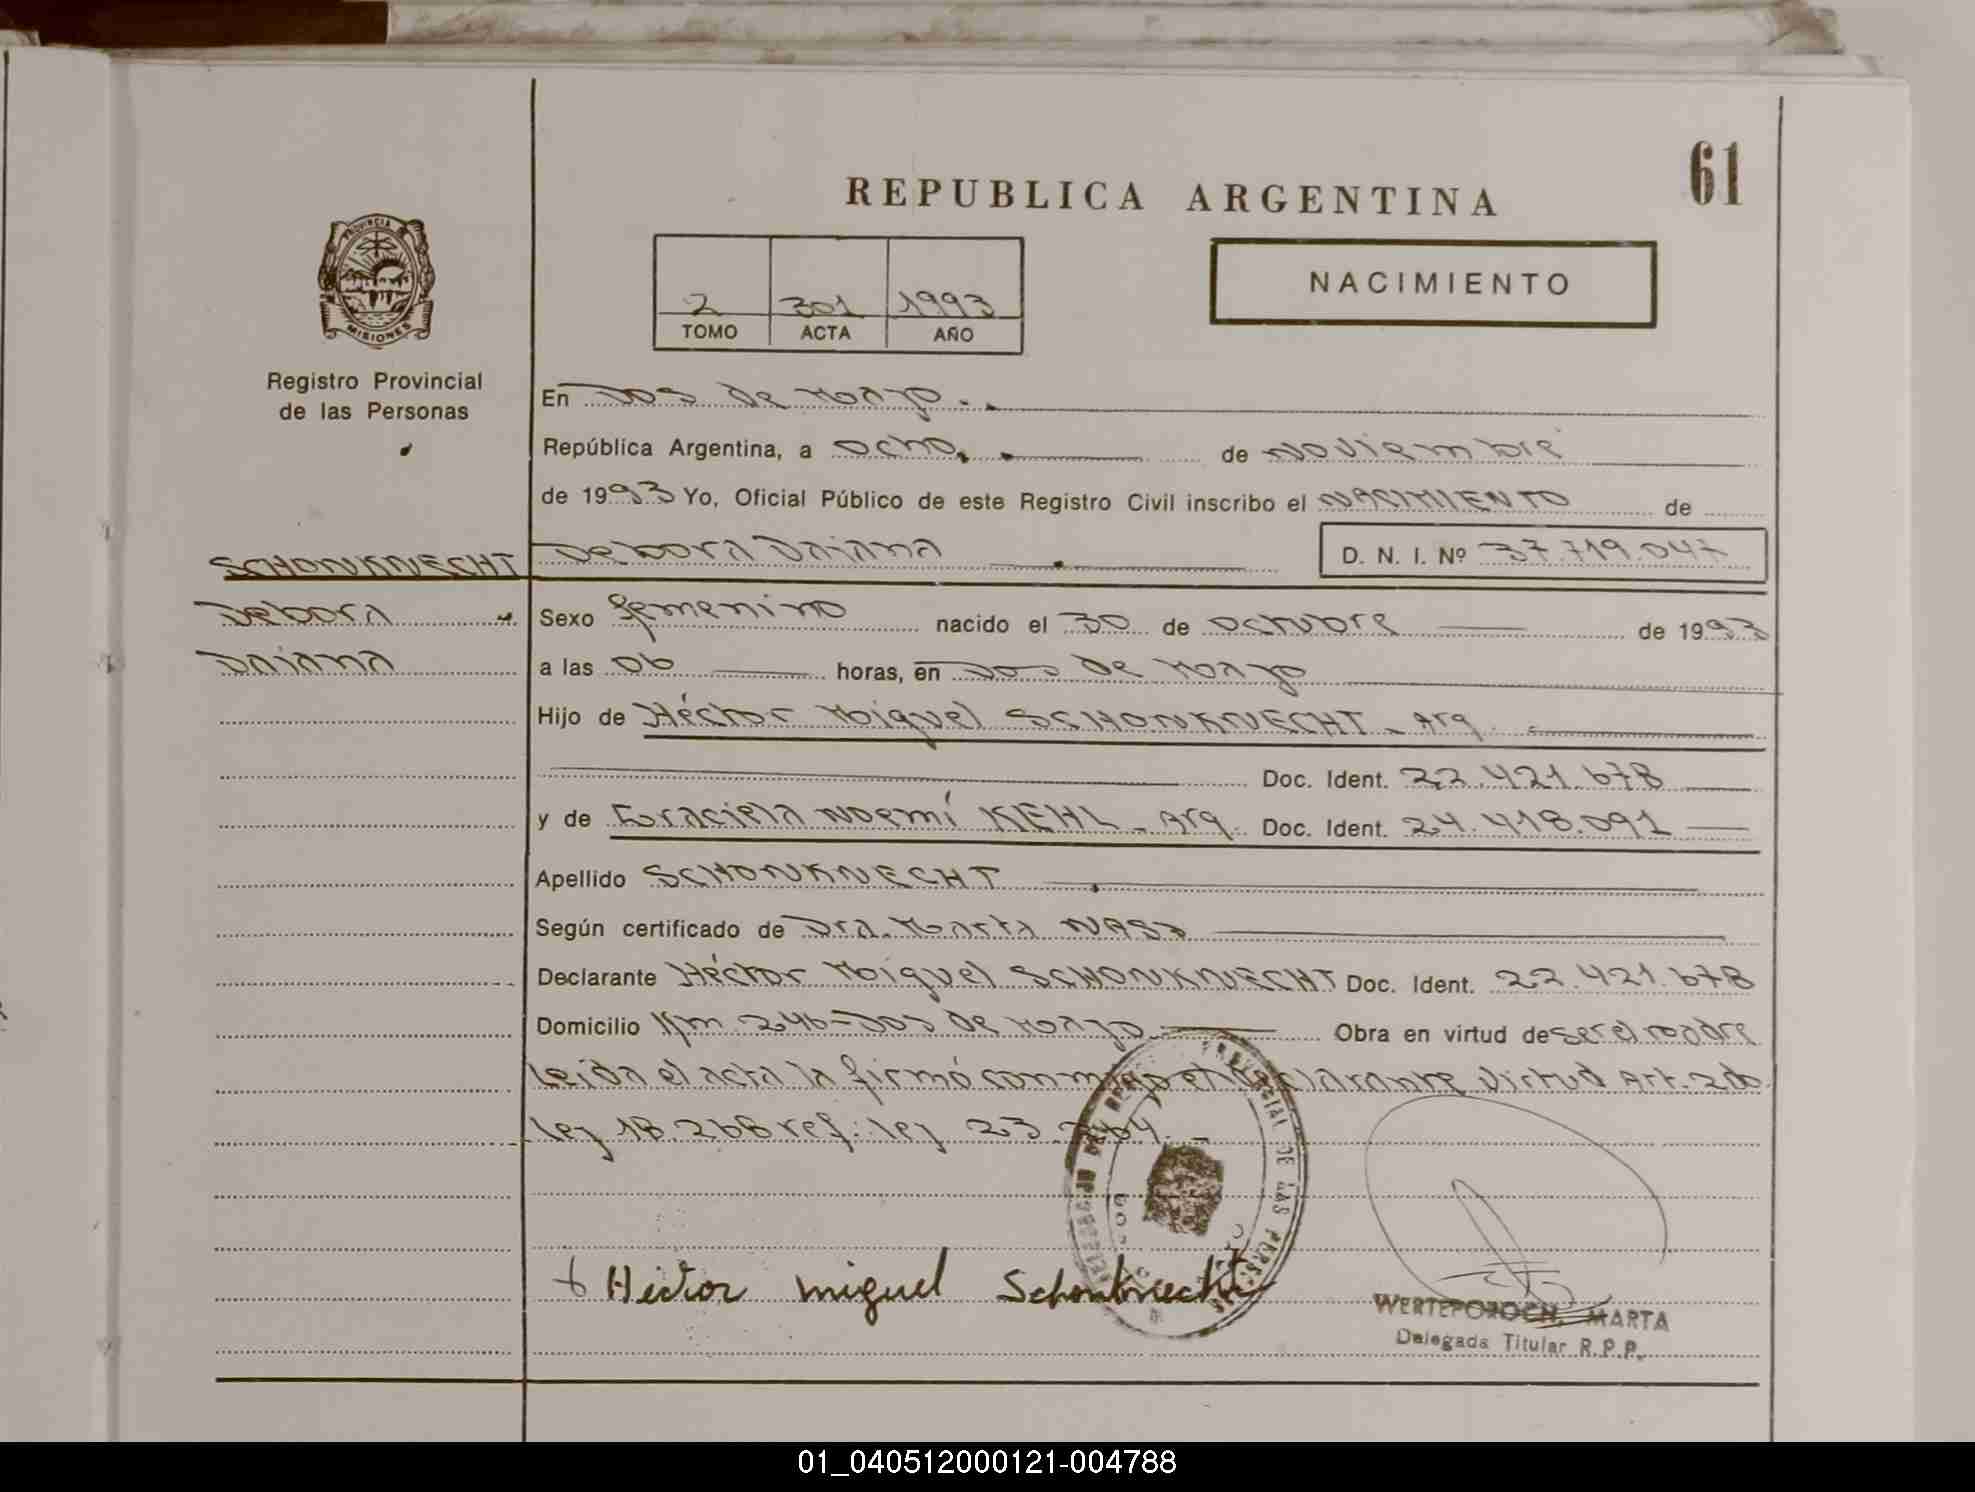 61
REPUBLICA ARGENTINA
PROVINCIA DE
MISIONES
Registro Provincial
de las Personas
NACIMIENTO
2 301 1993
TOMO ACTA AÑO
En Dos de Mayo.
República Argentina, a ocho. de noviembre
de 1993 Yo, Oficial Público de este Registro Civil inscribo el NACIMIENTO de
SCHONKNECHT Debora Daiana D. N. I. Nº 37.719.047
Debora
Daiana
Sexo femenino nacido el 30 de octubre de 1993
a las 06 horas, en Dos de Mayo
Hijo de Héctor Miguel SCHONKNECHT - Arg.
Doc. Ident. 22.421.678
y de Graciela Noemí KIEHL - Arg. Doc. Ident. 24.418.091
Apellido SCHONKNECHT
Según certificado de Dra. Marta
Declarante Héctor Miguel SCHONKNECHT Doc. Ident. 22.421.678
Domicilio Km 246 - Dos de Mayo Obra en virtud de ser el padre
Leida el acta la firmó conmigo el declarante virtud Art. 2do
ley 18.268 ref. ley 23.
Héctor miguel Schonknecht
WERTEPOROCH, MARTA
Delegada Titular R.P.P.
01_040512000121-004788